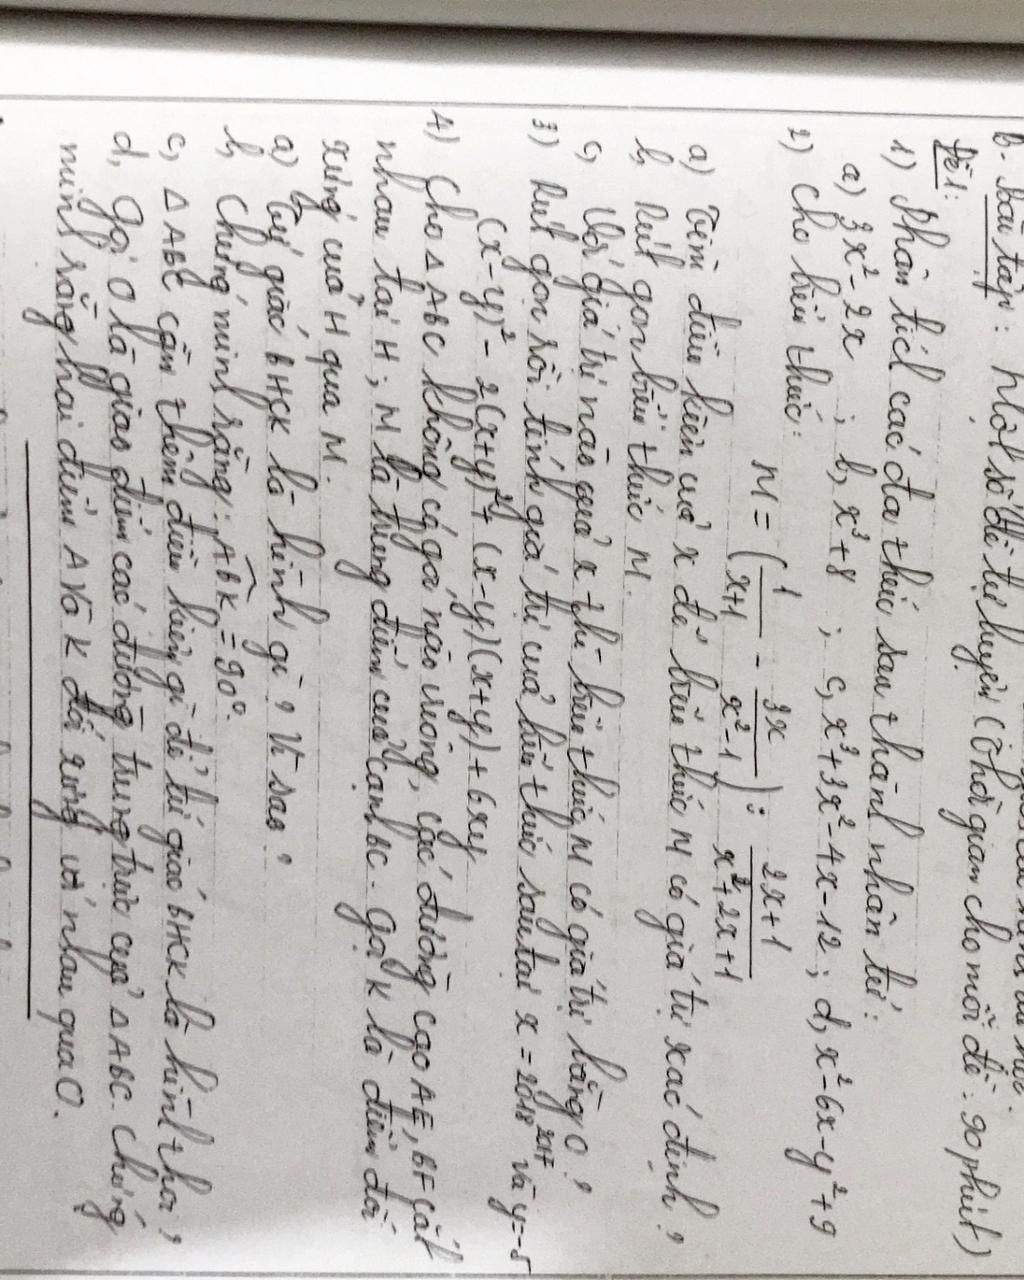 B. Bài tập: Một số đề tự luyện (Thời gian cho mỗi đề: 90 phút)
Đề 1:
1) Phân tích các đa thức sau thành nhân tử:
a) 3x² - 2x ; b, x³ + 8 ; c, x³ + 3x² - 4x - 12 ; d, x² - 6x - y² + 9
2) Cho biểu thức:
M = (1/(x+1) - 3x/(x²-1)) : (2x+1)/(x²+2x+1)
a) Tìm điều kiện của x để biểu thức M có giá trị xác định?
b, Rút gọn biểu thức M.
c, Với giá trị nào của x thì biểu thức M có giá trị bằng 0?
3) Rút gọn rồi tính giá trị của biểu thức sau tại x = 2018²⁰¹⁷ và y = -5
(x-y)² - 2(x+y)² + (x-y)(x+y) + 6xy
4) Cho ΔABC không có góc nào vuông, các đường cao AE, BF cắt
nhau tại H; M là trung điểm của cạnh BC. Gọi K là điểm đối
xứng của H qua M.
a) Tứ giác BHCK là hình gì? Vì sao?
b, Chứng minh rằng: ABK = 90°.
c, ΔABC cần thêm điều kiện gì để tứ giác BHCK là hình thoi?
d, Gọi O là giao điểm các đường trung trực của ΔABC. Chứng
minh rằng hai điểm A và K đối xứng với nhau qua O.